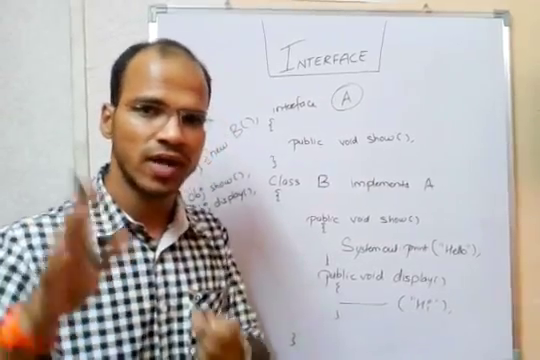 INTERFACE
interface A
{
public void show();
}
Class B implements A
{
public void show()
{
System.out.print("Hello");
}
public void display()
{
("Hi");
}
}
new B();
obj show();
display();